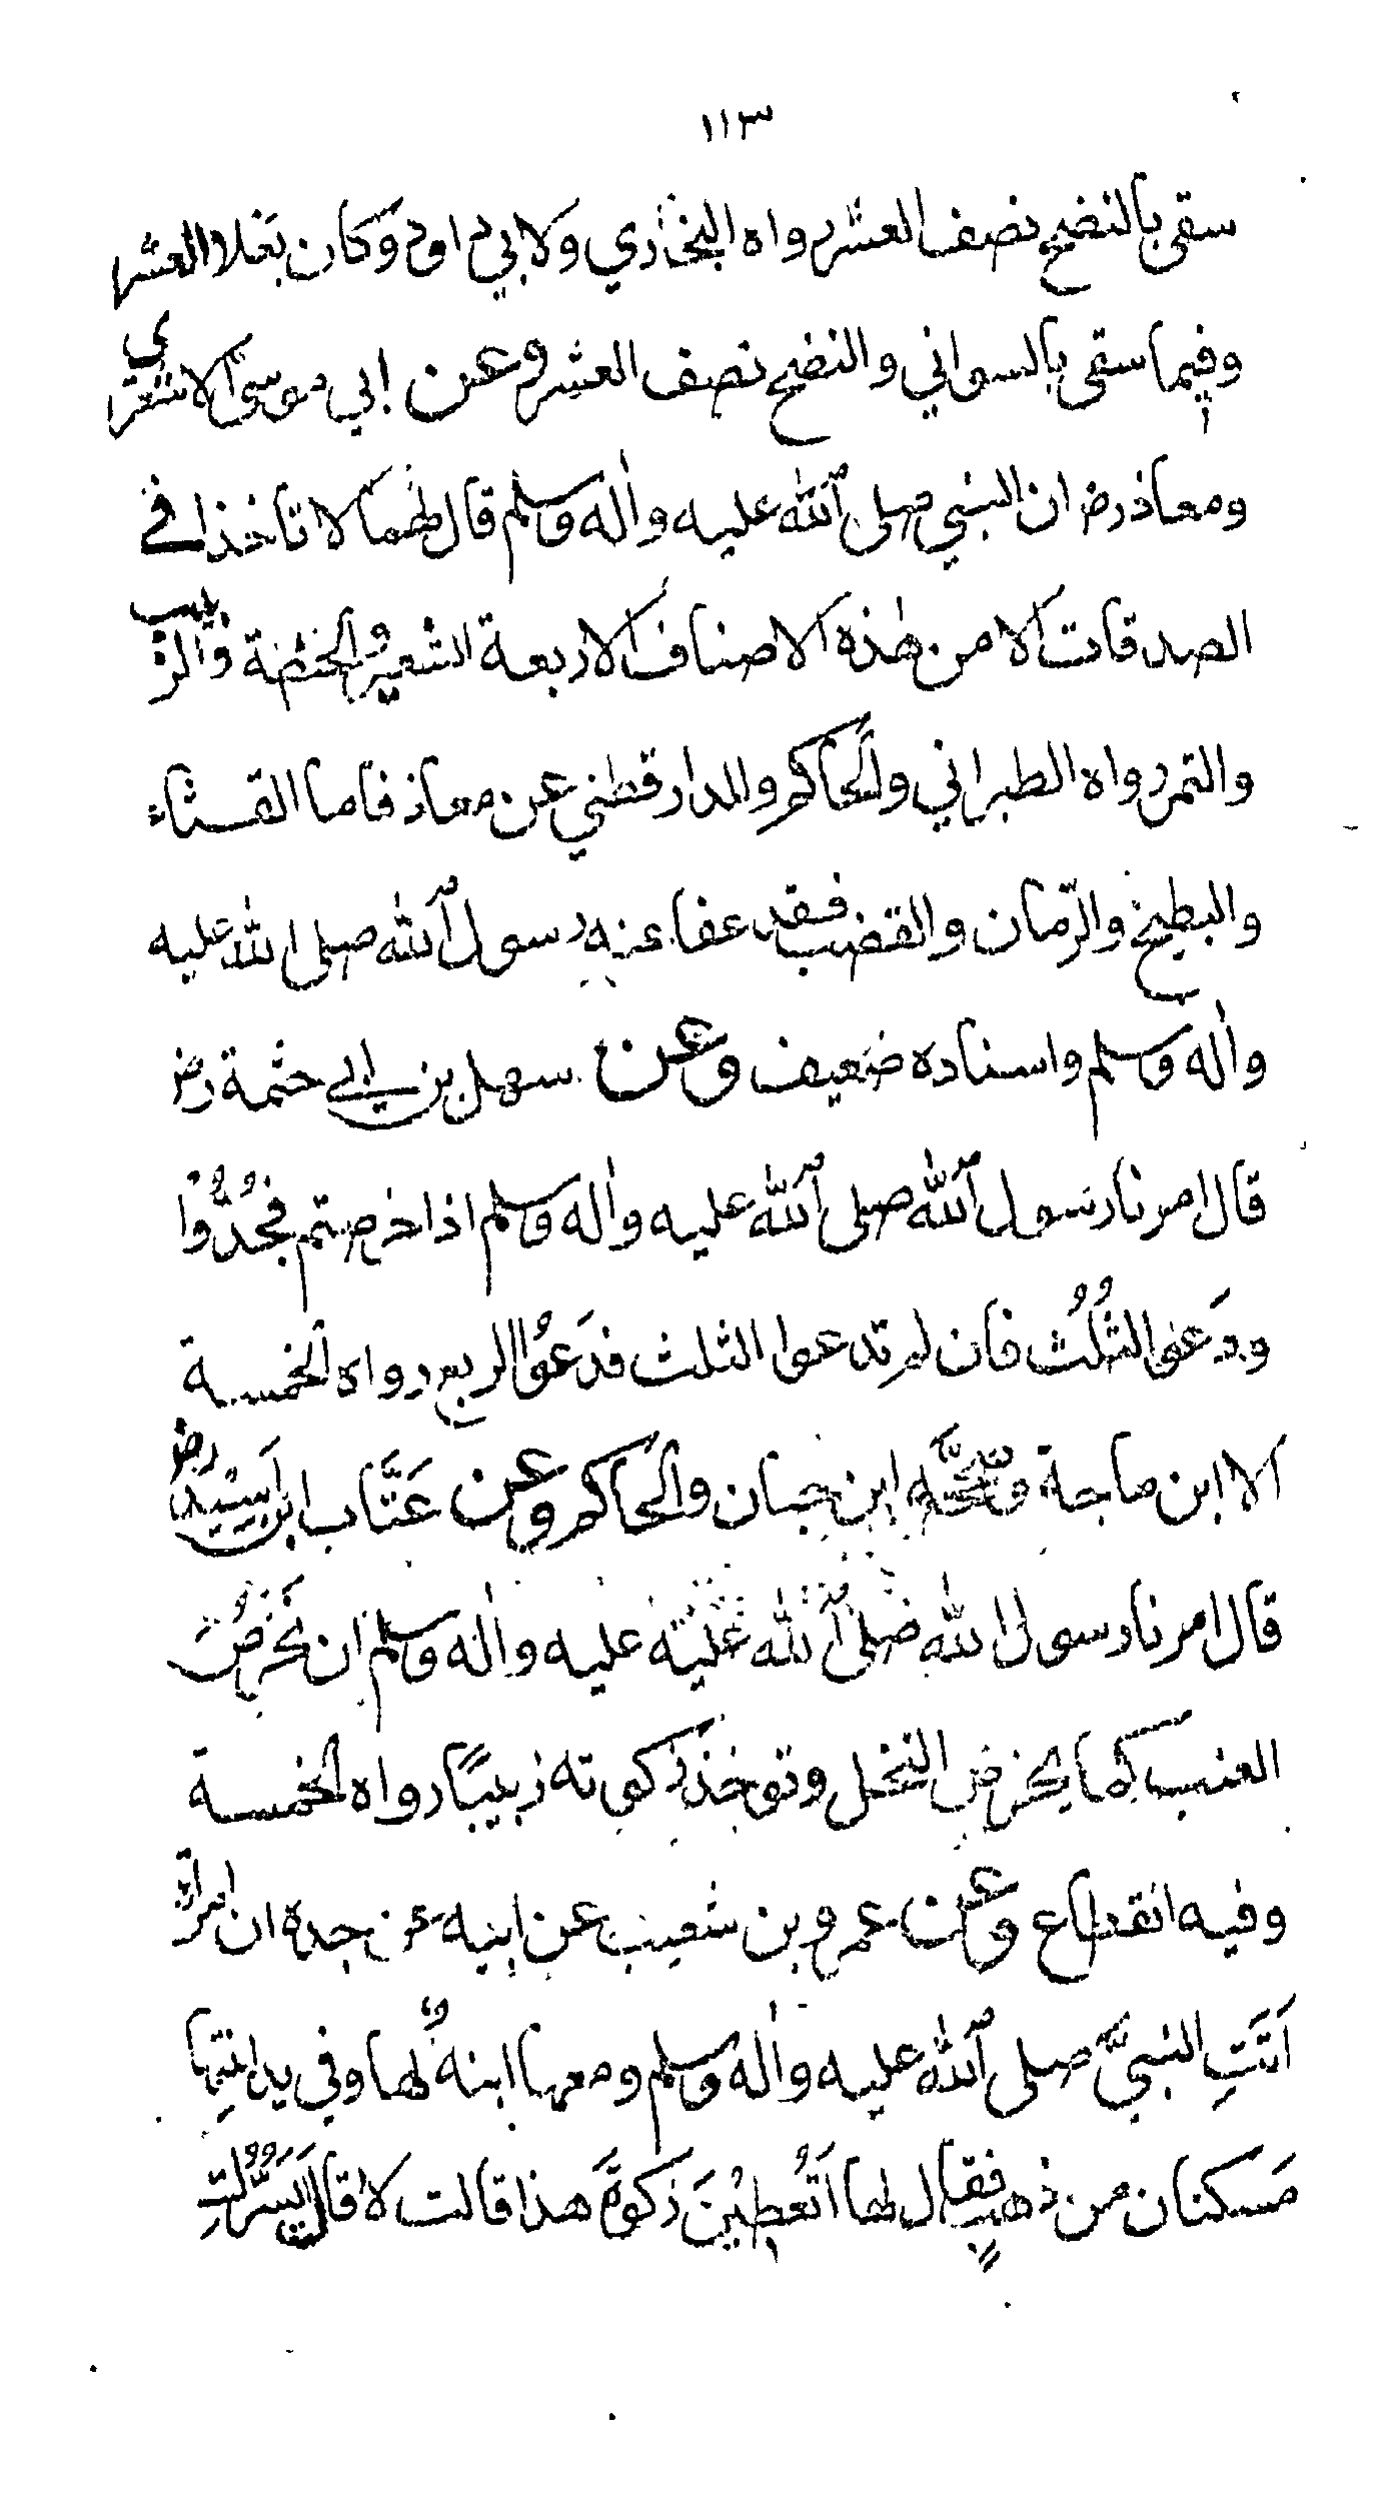 ١١٣
سقي بالنضح نصف العشر رواه البخاري ولابي داود وكان بعلا العشر
وفيما سقي بالسواني والنضح نصف العشر وعن ابي موسى الاشعري
ومعاذ رض ان النبي صلى الله عليه واله وسلم قال لهما لا تاخذا في
الصدقات الا من هذه الاصناف الاربعة الشعير والحنطة والزبيب
والتمر رواه الطبراني والحاكم والدارقطني عن معاذ فاما القثاء
والبطيخ والرمان والقضب فقد عفا عنه رسول الله صلى الله عليه
واله وسلم واسناده ضعيف وعن سهل بن ابي حثمة رض
قال امرنا رسول الله صلى الله عليه واله وسلم اذا خرصتم فجُدُّوْا
ودَعوا الثُلُث فان لم تدعوا الثلث فدَعُوا الربع رواه الخمسة
الا ابن ماجة وصححَّه ابن حبان والحاكم وعن عَتَّاب ابن اَسِيْد رض
قال امرنا رسول الله صلى الله عليه عليه واله وسلم ان نَخْرُصَ
العنب كما يخرص النخل وتوخذ زكوته زبيبًا رواه الخمسة
وفيه انقطاع وعن عمرو بن شعيب عن ابيه عن جده ان امراة
اَتَتِ النبيَّ صلى الله عليه واله وسلم ومعها ابنةٌ لها وفي يد ابنتِها
مَسكتان من ذهبٍ فقال لها اَتُعطِيْنَ زكوةَ هذا قالت لا قال اَيَسُرُّكِ